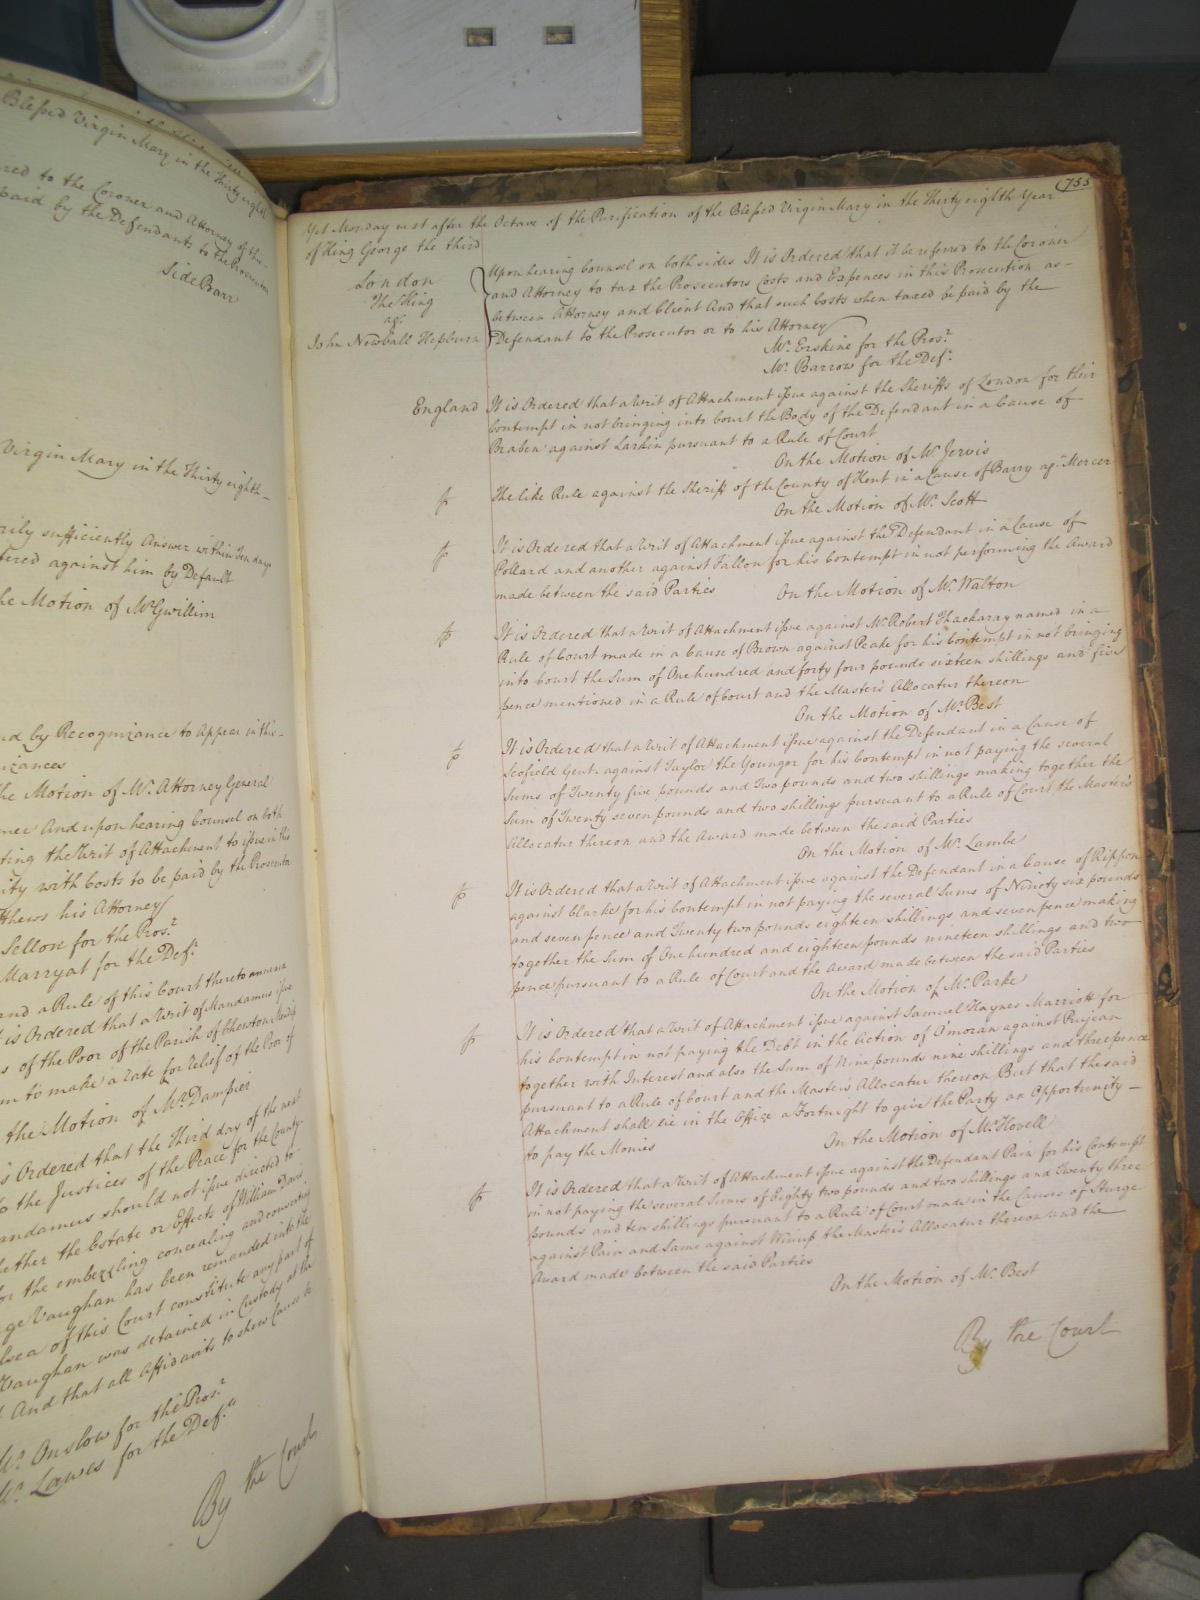 Blessed Virgin Mary in the Thirty eighth
red to the Coroner and Attorney of this
paid by the Defendants to the Prosecutor
Side Barr
Virgin Mary in the Thirty eighth
rily sufficiently Answer within Ten days
tered against him by Default
he Motion of Mr Gwillim
nd by Recognizance to Appear in this
nizances
he Motion of Mr. Attorney General
ner And upon hearing Counsel on both
ting the Writ of Attachment to issue in this
ity with Costs to be paid by the Prosecutor
tthews his Attorney
Sellon for the Pros.r
Marryat for the Def.t
and a Rule of this Court thereto annexed
t is Ordered that a Writ of Mandamus issue
s of the Poor of the Parish of Chewton Mendip
m to make a rate for relief of the Poor of
the Motion of Mr. Dampier
is Ordered that the Third day of the next
to the Justices of the Peace for the County
andamus should not issue directed to
ether the Estate or Effects of William Davis
for the embezzling concealing and converting
ge Vaughan has been remanded into the
lsea of this Court constitute any part of
Vaughan was detained in Custody at the
And that all Affidavits to shew Cause to
Mr. Onslow for the Pros.r
Mr. Lawes for the Def.t
By the Court
755
Yet Monday next after the Octave of the Purification of the Blessed Virgin Mary in the Thirty eighth Year
of King George the third
London
The King
agt.
John Newball Hepburn
Upon hearing Counsel on both sides It is Ordered that it be referred to the Coroner
and Attorney to tax the Prosecutors Costs and Expences in this Prosecution as
between Attorney and Client And that such Costs when taxed be paid by the
Defendant to the Prosecutor or to his Attorney
Mr. Erskine for the Pros.r
Mr. Barrow for the Def.t
England It is Ordered that a Writ of Attachment issue against the Sheriffs of London for their
Contempt in not bringing into Court the Body of the Defendant in a Cause of
Braben against Larkin pursuant to a Rule of Court
On the Motion of Mr. Jervis
The like Rule against the Sheriff of the County of Kent in a Cause of Barry agt. Mercer
On the Motion of Mr. Scott
It is Ordered that a Writ of Attachment issue against the Defendant in a Cause of
Pollard and another against Fallon for his Contempt in not performing the Award
made between the said Parties On the Motion of Mr. Walton
It is Ordered that a Writ of Attachment issue against Mr. Robert Thackaray named in a
Rule of Court made in a Cause of Brown against Peake for his Contempt in not bringing
into Court the Sum of One hundred and forty four pounds sixteen shillings and five
pence mentioned in a Rule of Court and the Master's Allocatur thereon
On the Motion of Mr. Best
It is Ordered that a Writ of Attachment issue against the Defendant in a Cause of
Scofield Gent. against Taylor the Younger for his Contempt in not paying the several
Sums of Twenty five pounds and Two pounds and two shillings making together the
Sum of Twenty seven pounds and two shillings pursuant to a Rule of Court the Master's
Allocatur thereon and the Award made between the said Parties
On the Motion of Mr. Lambe
It is Ordered that a Writ of Attachment issue against the Defendant in a Cause of Rippon
against Clarke for his Contempt in not paying the several Sums of Ninety six pounds
and seven pence and Twenty two pounds eighteen shillings and seven pence making
together the Sum of One hundred and eighteen pounds nineteen shillings and two
pence pursuant to a Rule of Court and the Award made between the said Parties
On the Motion of Mr. Parke
It is Ordered that a Writ of Attachment issue against Samuel Haynes Marriott for
his Contempt in not paying the Debt in the Action of A'moran against Prujean
together with Interest and also the Sum of Nine pounds nine shillings and three pence
pursuant to a Rule of Court and the Master's Allocatur thereon But that the said
Attachment shall lie in the Office a Fortnight to give the Party an Opportunity
to pay the Monies On the Motion of Mr Hovell
It is Ordered that a Writ of Attachment issue against the Defendant Pain for his Contempt
in not paying the several Sums of Eighty two pounds and two shillings and Twenty three
pounds and ten shillings pursuant to a Rule of Court made in the Causes of Sturge
against Pain and Same against Wimp the Master's Allocatur thereon and the
Award made between the said Parties
On the Motion of Mr. Best
By the Court